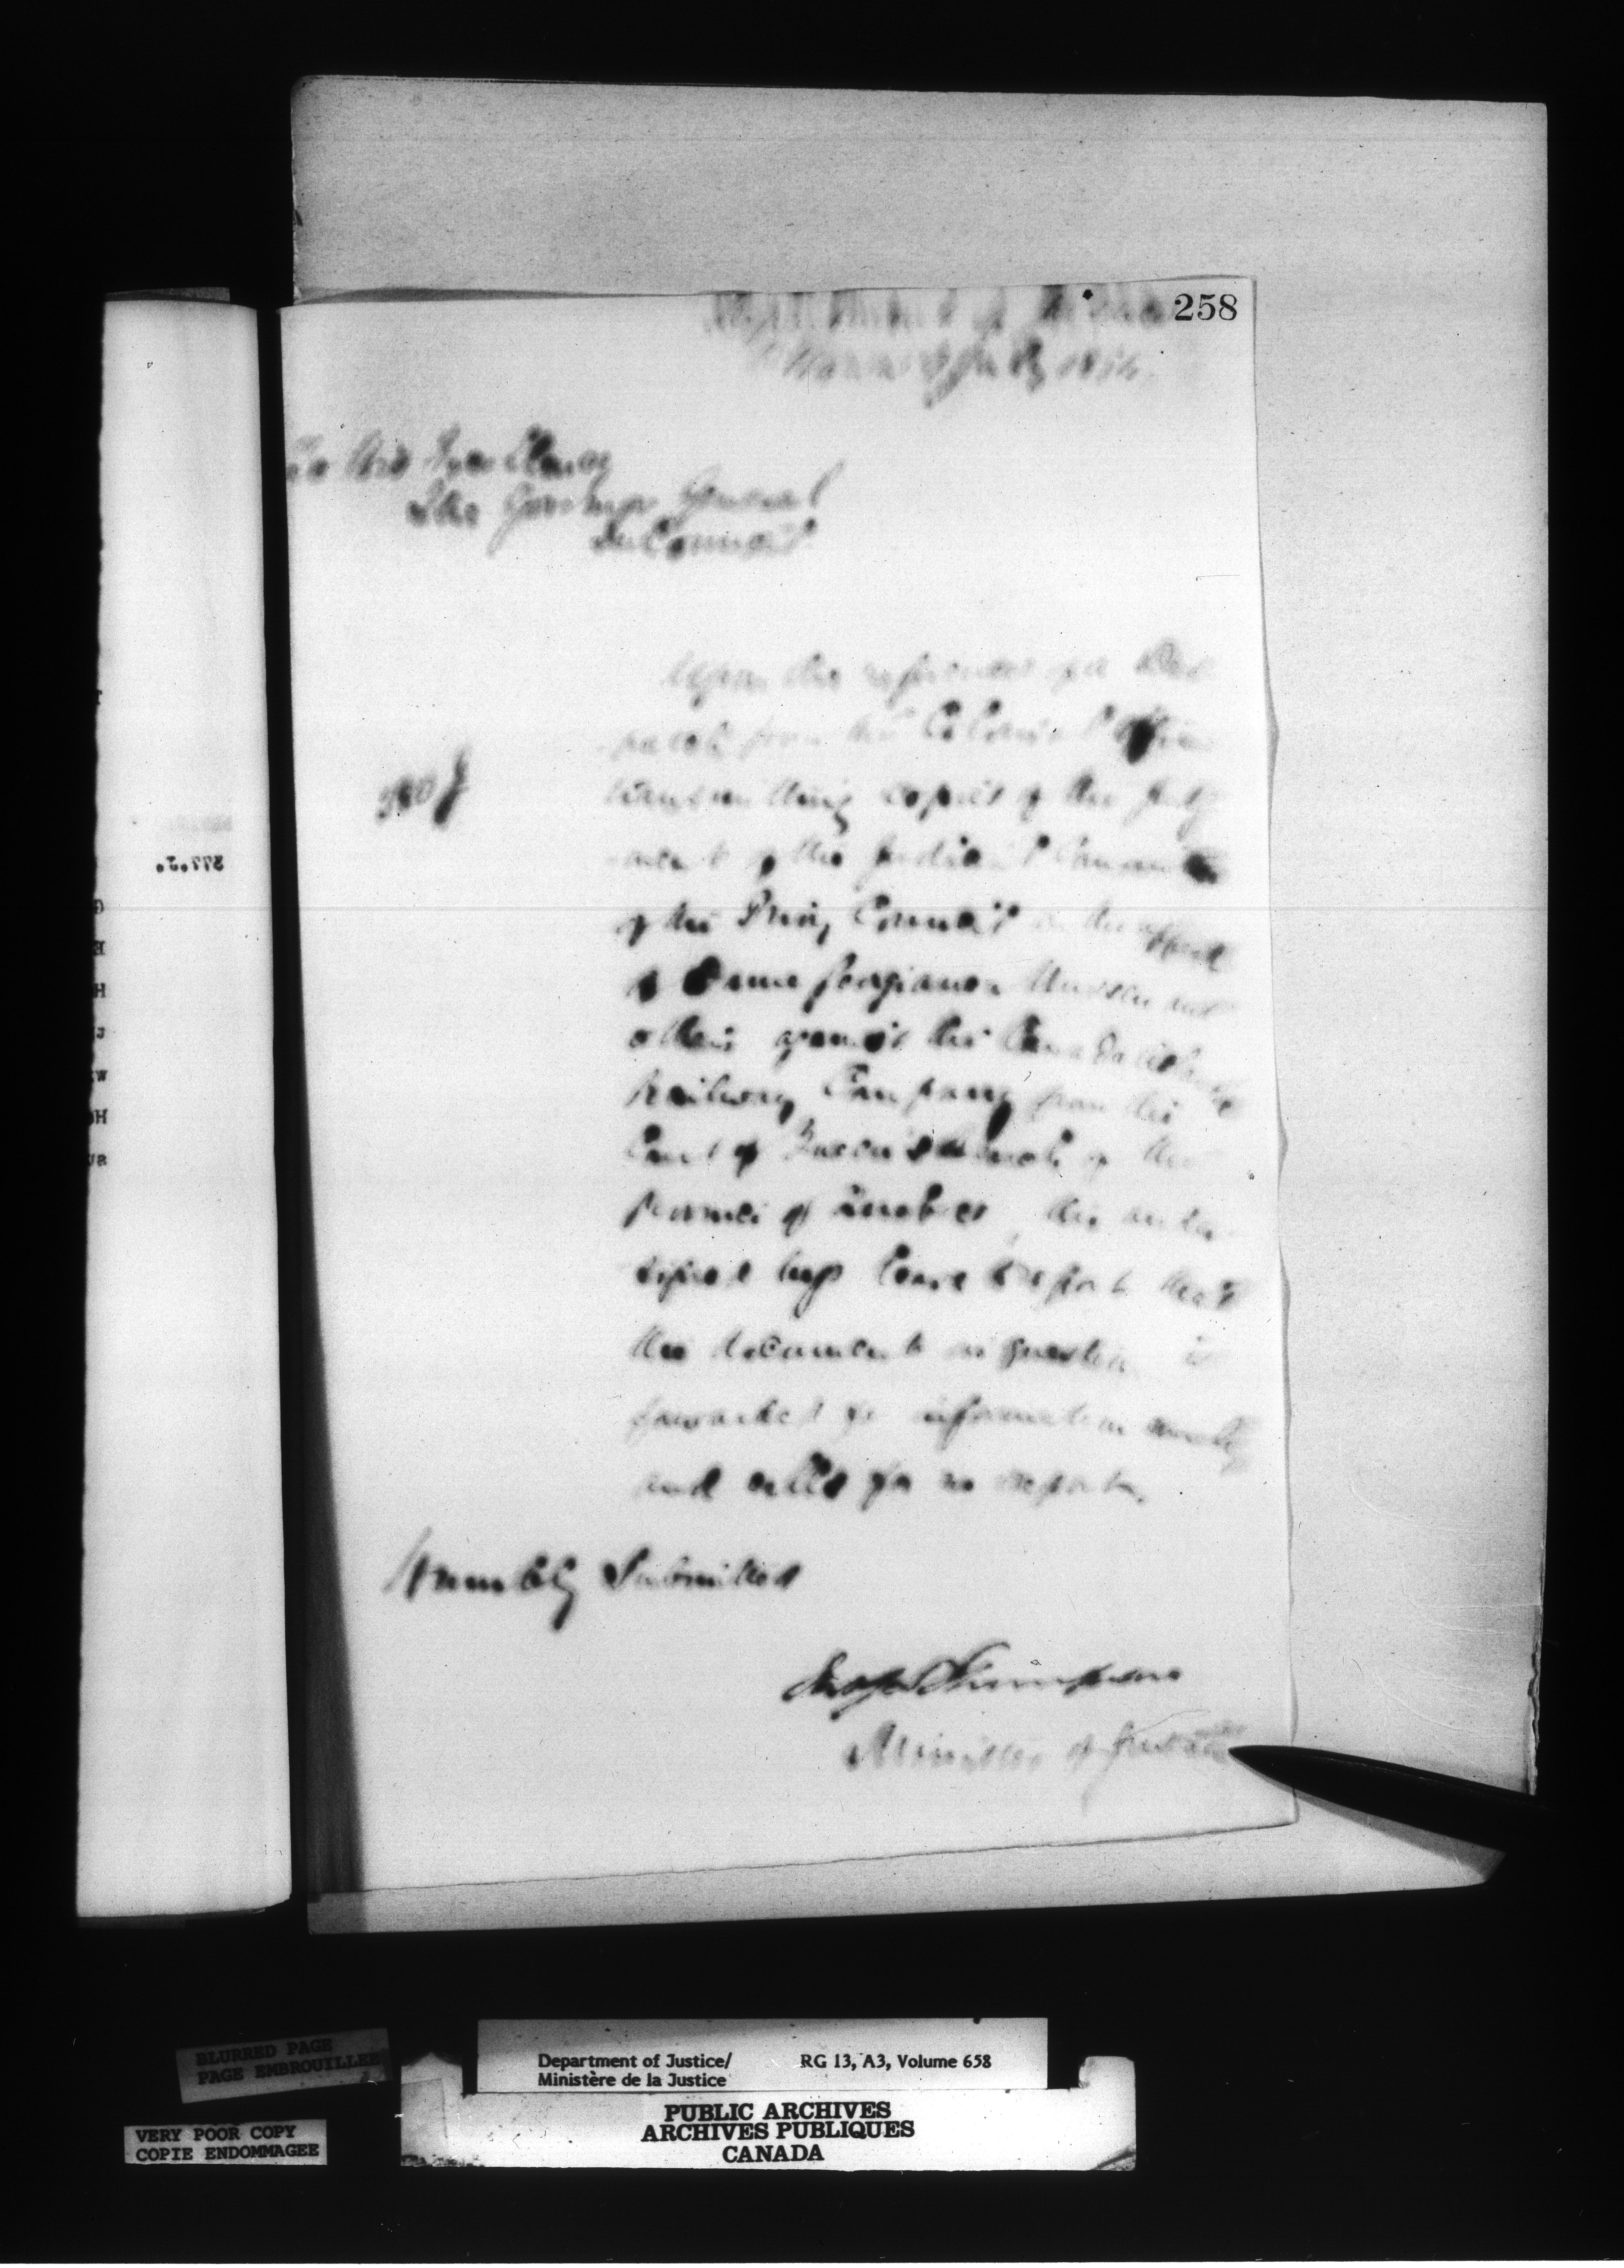 258
Department of Justice
Ottawa July
To His Excellency
The Governor General
In Council
Upon the reference of a Des
patch from the Colonial Office
transmitting copies of the Judg
ment of the Judicial Committee
of the Privy Council in the appeal
of Dame Georgiana and
others against the Canada Atlantic
Railway Company from the
Court of Queen's Bench of the
Province of Quebec, the under
signed begs leave to report that
the document in question is
forwarded for information merely
and calls for no report.
Humbly Submitted
Thompson
Minister of Justice
377.J.
BLURRED PAGE
PAGE EMBROUILLEE
VERY POOR COPY
COPIE ENDOMMAGEE
Department of Justice/ RG 13, A3, Volume 658
Ministère de la Justice
PUBLIC ARCHIVES
ARCHIVES PUBLIQUES
CANADA